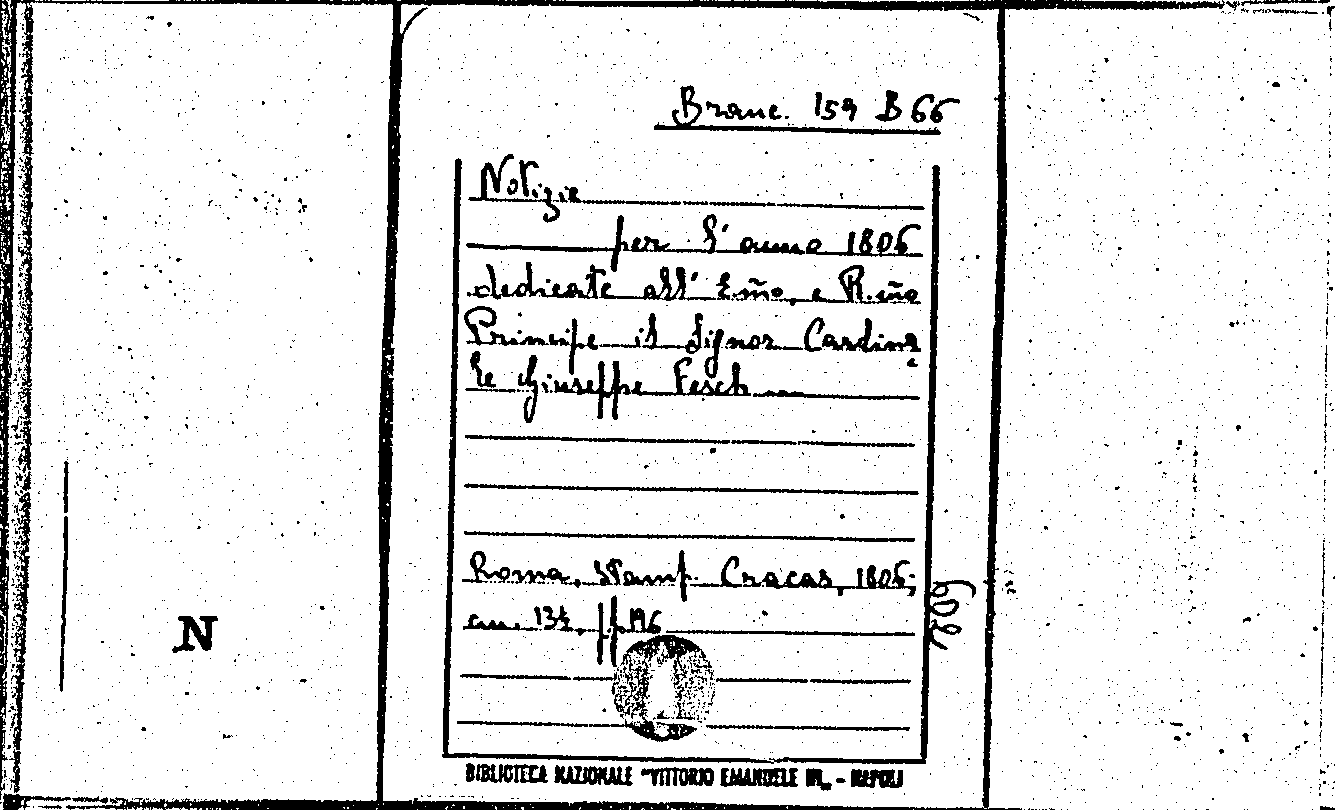 Branc. 159 B 66
Notizie
per l'anno 1806
dedicate all' E.ño, e R.ño
Principe il Signor Cardina
le Giuseppe Fesch
Roma, Stamp. Cracas, 1806;
cm. 13½, pp. 196
N
BIBLIOTECA NAZIONALE "VITTORIO EMANUELE III„ - NAPOLI